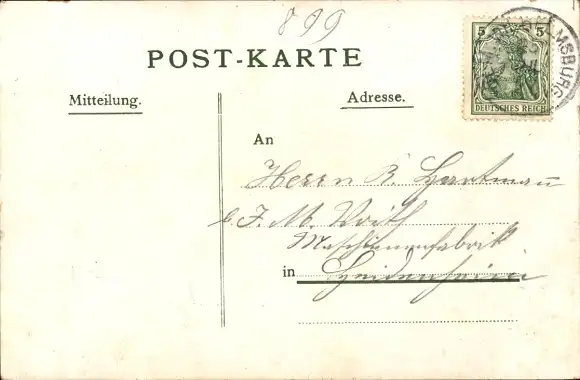 899
POST-KARTE
5 5
DEUTSCHES REICH
MSBURG
Mitteilung.
Adresse.
An
Herrn B. Hartmann
b. J. M. Voith
Maschinenfabrik
in Heidenheim